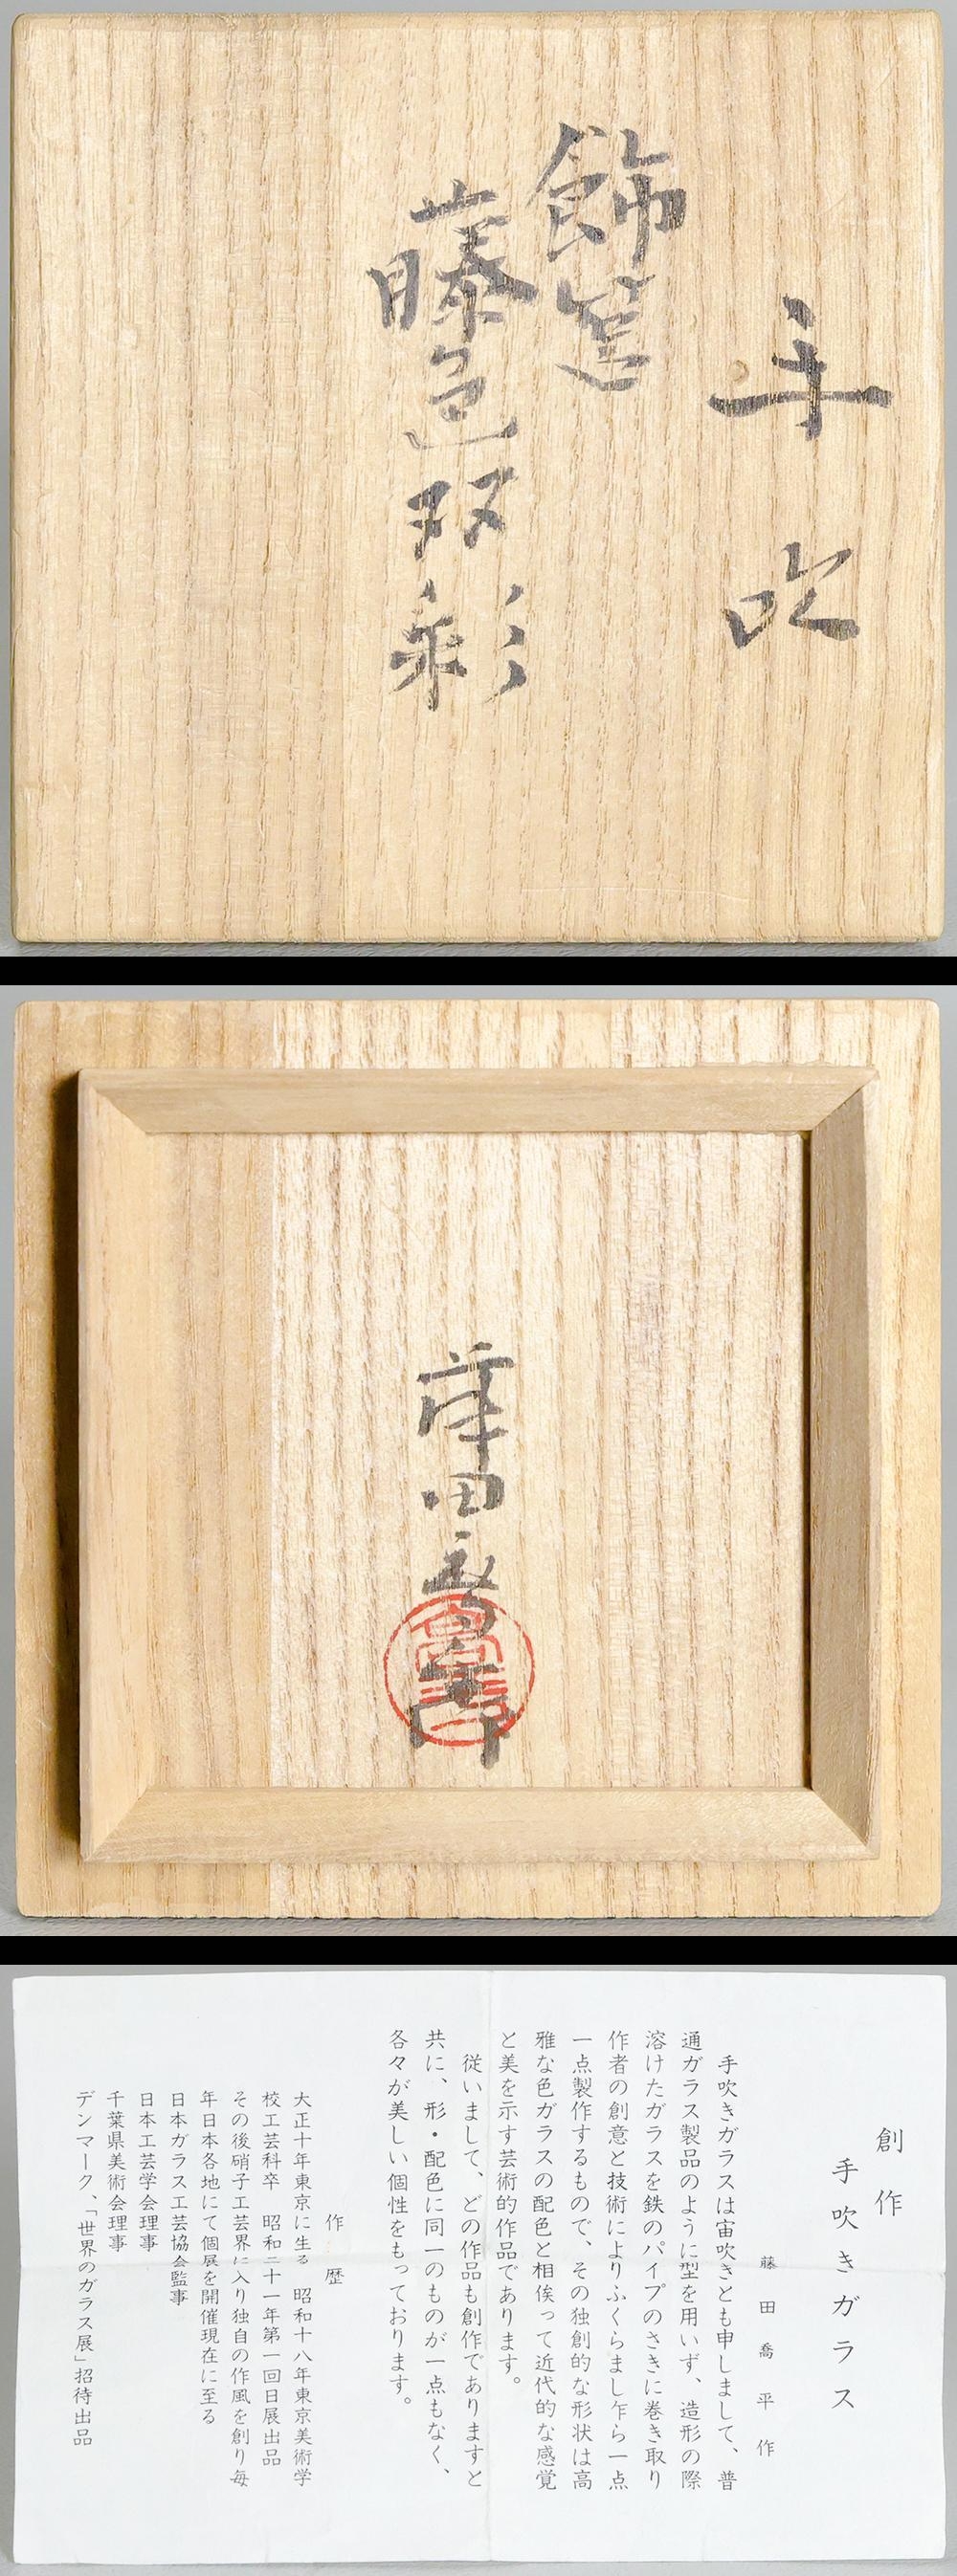 手吹
飾筥
藤色双彩
藤田喬平
創作
手吹きガラス
藤田喬平作
手吹きガラスは宙吹きとも申しまして、普
通ガラス製品のように型を用いず、造形の際
溶けたガラスを鉄のパイプのさきに巻き取り
作者の創意と技術によりふくらまし乍ら一点
一点製作するもので、その独創的な形状は高
雅な色ガラスの配色と相俟って近代的な感覚
と美を示す芸術的作品であります。
従いまして、どの作品も創作でありますと
共に、形・配色に同一のものが一点もなく、
各々が美しい個性をもっております。
作歴
大正十年東京に生る 昭和十八年東京美術学
校工芸科卒 昭和二十一年第一回日展出品
その後硝子工芸界に入り独自の作風を創り毎
年日本各地にて個展を開催現在に至る
日本ガラス工芸協会監事
日本工芸学会理事
千葉県美術会理事
デンマーク、「世界のガラス展」招待出品